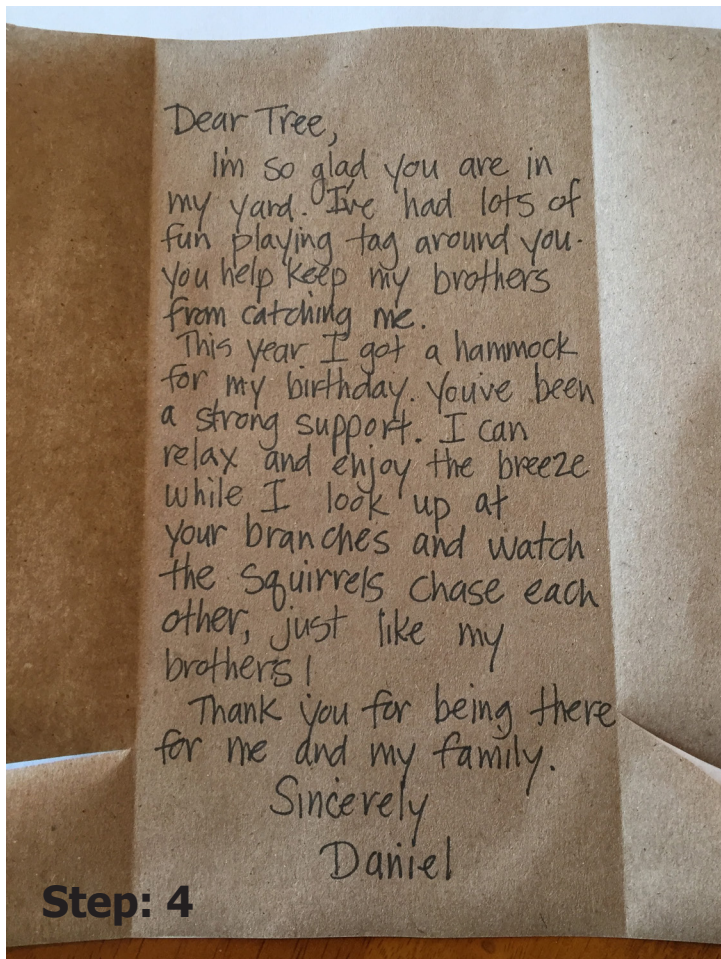 Dear Tree,
I'm so glad you are in
my yard. I've had lots of
fun playing tag around you.
you help keep my brothers
from catching me.
This year I got a hammock
for my birthday. You've been
a strong support. I can
relax and enjoy the breeze
while I look up at
your branches and watch
the squirrels chase each
other, just like my
brothers!
Thank you for being there
for me and my family.
Sincerely
Daniel
Step: 4